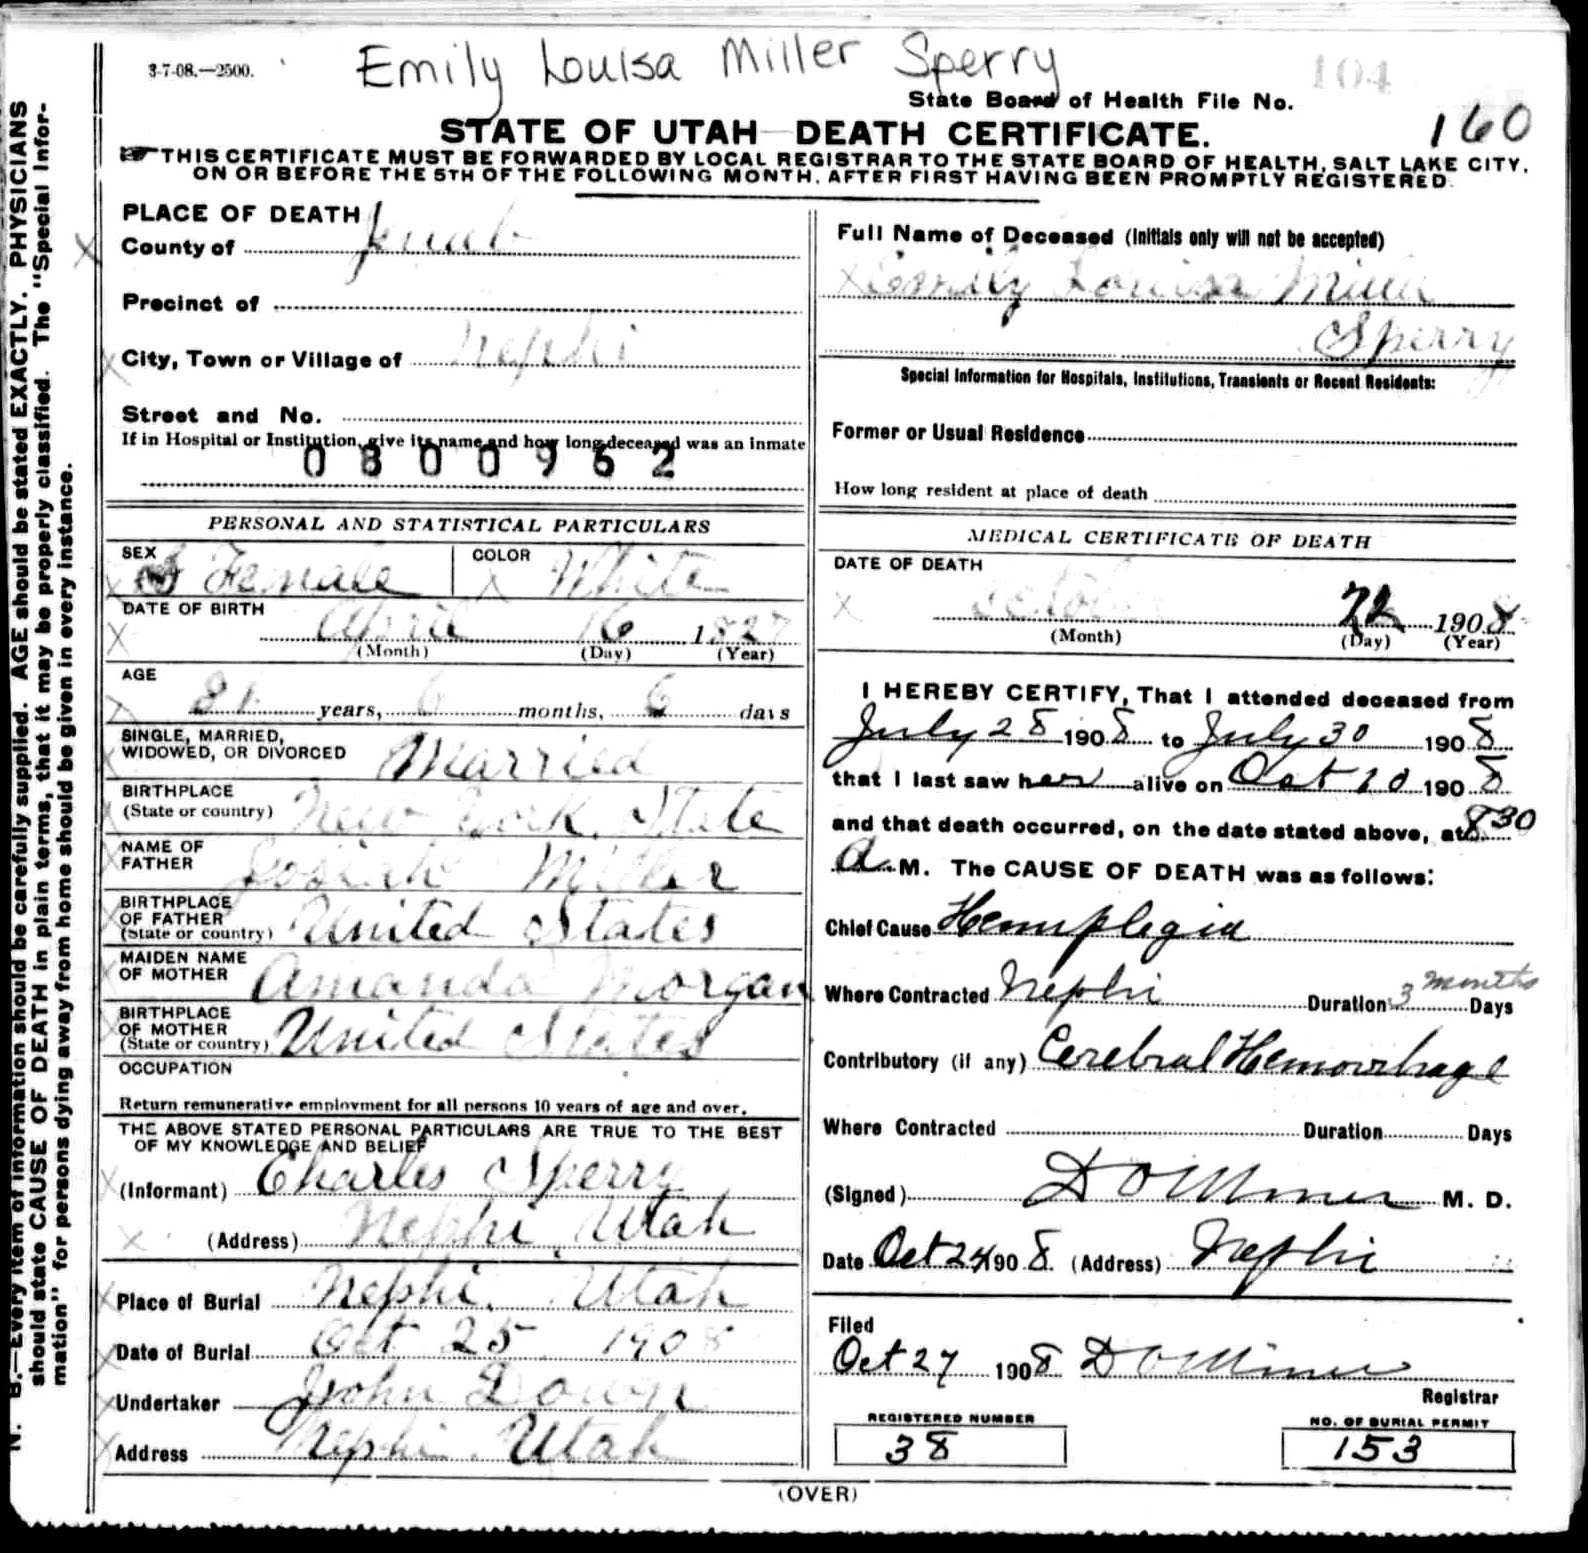 Emily Louisa Miller Sperry
3-7-08.—2500.
104
State Board of Health File No.
160
STATE OF UTAH—DEATH CERTIFICATE.
THIS CERTIFICATE MUST BE FORWARDED BY LOCAL REGISTRAR TO THE STATE BOARD OF HEALTH, SALT LAKE CITY,
ON OR BEFORE THE 5TH OF THE FOLLOWING MONTH, AFTER FIRST HAVING BEEN PROMPTLY REGISTERED.
N. B.—Every item of information should be carefully supplied. AGE should be stated EXACTLY. PHYSICIANS
should state CAUSE OF DEATH in plain terms, that it may be properly classified. The "Special Infor-
mation" for persons dying away from home should be given in every instance.
PLACE OF DEATH
County of Juab
Precinct of
City, Town or Village of Nephi
Street and No.
If in Hospital or Institution, give its name and how long deceased was an inmate
0300962
PERSONAL AND STATISTICAL PARTICULARS
SEX Female COLOR White
DATE OF BIRTH
April 16 1827
(Month) (Day) (Year)
AGE
81 years, 6 months, 6 days
SINGLE, MARRIED,
WIDOWED, OR DIVORCED Married
BIRTHPLACE
(State or country) New York State
NAME OF
FATHER Josiah Miller
BIRTHPLACE
OF FATHER
(State or country) United States
MAIDEN NAME
OF MOTHER Amanda Morgan
BIRTHPLACE
OF MOTHER
(State or country) United States
OCCUPATION
Return remunerative employment for all persons 10 years of age and over.
THE ABOVE STATED PERSONAL PARTICULARS ARE TRUE TO THE BEST
OF MY KNOWLEDGE AND BELIEF
(Informant) Charles Sperry
(Address) Nephi, Utah
Place of Burial Nephi, Utah
Date of Burial Oct 25 1908
Undertaker John Down
Address Nephi Utah
Full Name of Deceased (Initials only will not be accepted)
Emily Louisa Miller
Sperry
Special Information for Hospitals, Institutions, Transients or Recent Residents:
Former or Usual Residence
How long resident at place of death
MEDICAL CERTIFICATE OF DEATH
DATE OF DEATH
October 22 1908
(Month) (Day) (Year)
I HEREBY CERTIFY, That I attended deceased from
July 28 1908 to July 30 1908
that I last saw her alive on Oct 10 1908
and that death occurred, on the date stated above, at 8 30
a M. The CAUSE OF DEATH was as follows:
Chief Cause Hemiplegia
Where Contracted Nephi Duration 3 months Days
Contributory (if any) Cerebral Hemorrhage
Where Contracted Duration Days
(Signed) M. D.
Date Oct 24 1908 (Address) Nephi
Filed
Oct 27 1908
Registrar
REGISTERED NUMBER
38
NO. OF BURIAL PERMIT
153
(OVER)